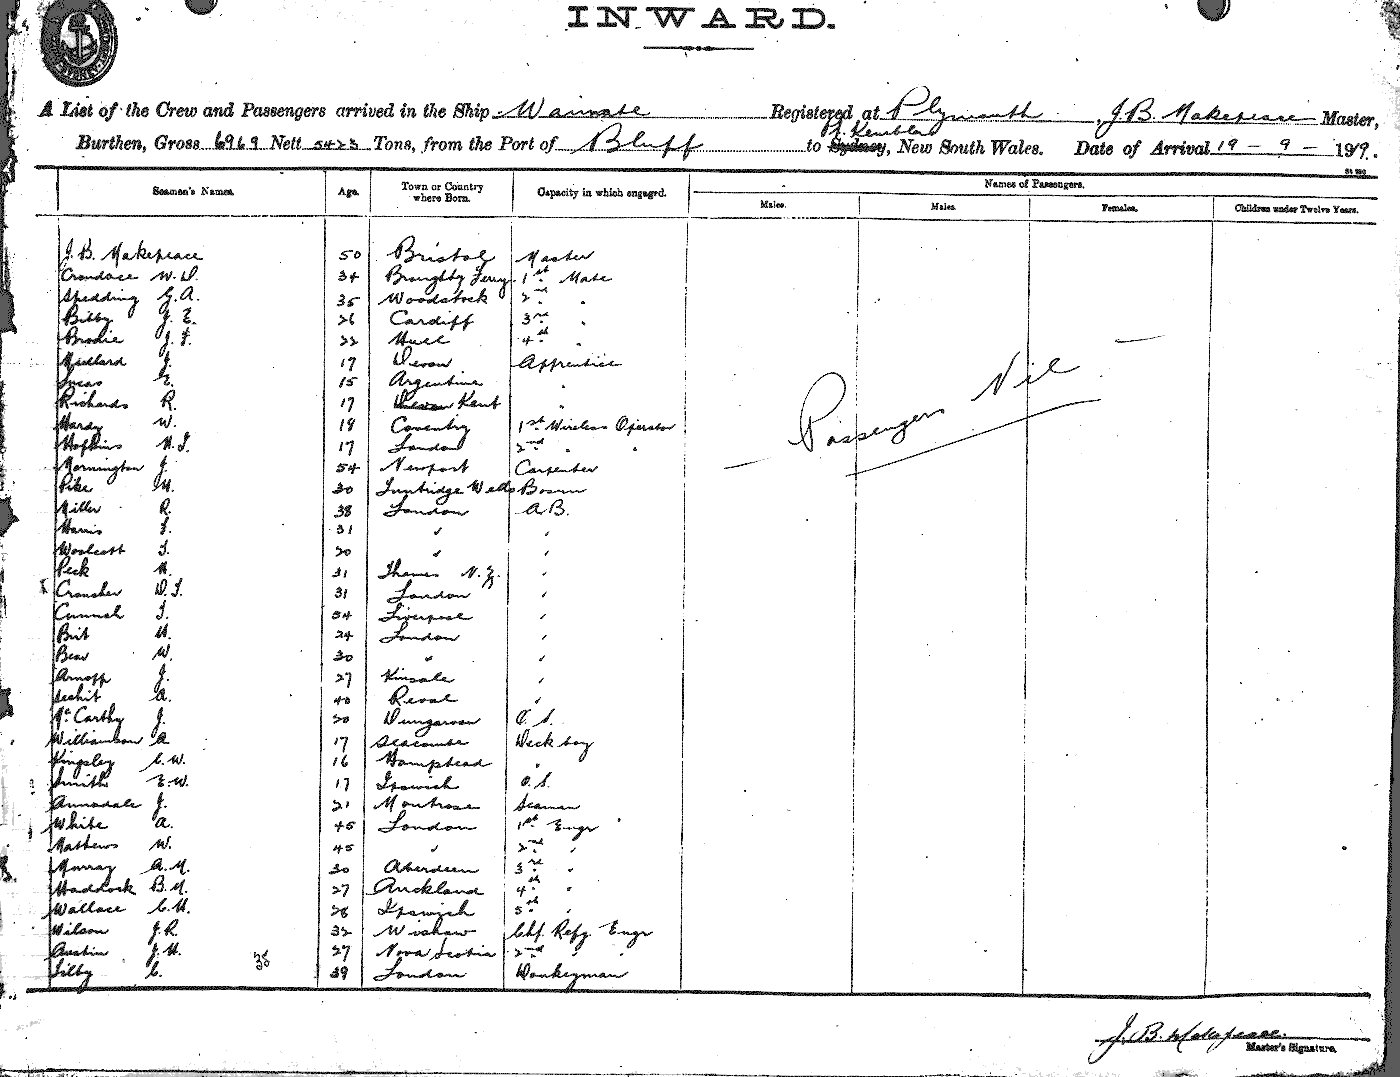 INWARD.
A List of the Crew and Passengers arrived in the Ship Waimate Registered at Plymouth, J. B. Makepeace Master,
Burthen, Gross 6969 Nett 5423 Tons, from the Port of Bluff to Pt. Kembla Sydney, New South Wales. Date of Arrival 19 - 9 - 1919.
Seamen's Names. Age. Town or Country where Born. Capacity in which engaged. Names of Passengers.
Males. Males. Females. Children under Twelve Years.
J. B. Makepeace 50 Bristol Master
Crondace W. D. 34 Broughty Ferry 1st Mate
Spedding G. A. 35 Woodstock 2nd "
Bilby J. E. 26 Cardiff 3rd "
Brodie J. F. 22 Hull 4th "
Midland J. 17 Devon Apprentice
Lucas E. 15 Argentine "
Richards R. 17 Devon Kent "
Hardy W. 19 Coventry 1st Wireless Operator
Hopkins H. J. 17 London 2nd " "
Mornington J. 54 Newport Carpenter
Pike M. 30 Tunbridge Wells Bosun
Miller R. 38 London A.B.
Harris F. 31 " "
Woolcott T. 20 " "
Peck H. 31 Thames N.Z. "
Croucher D. J. 31 London "
T. 54 Liverpool "
Brit H. 24 London "
Bew W. 30 " "
J. 27 Kinsale "
A. 40 Reval "
McCarthy J. 20 Dungarvan O.S.
Williamson A 17 Seacombe Deck boy
Kingsley C. W. 16 Hampstead "
Smith E. W. 17 Ipswich O.S.
Annadale J. 21 Montrose Seaman
White A. 45 London 1st Engr
Mathews W. 45 " 2nd "
Murray A. M. 30 Aberdeen 3rd "
Haddock B. H. 27 Auckland 4th "
Wallace C. H. 28 Ipswich 5th "
Wilson J. R. 32 Wishaw Chf. Refg Engr
Austin J. H. 27 Nova Scotia 2nd " "
Silby C. 39 London Donkeyman
— Passengers Nil —
J. B. Makepeace.
Master's Signature.